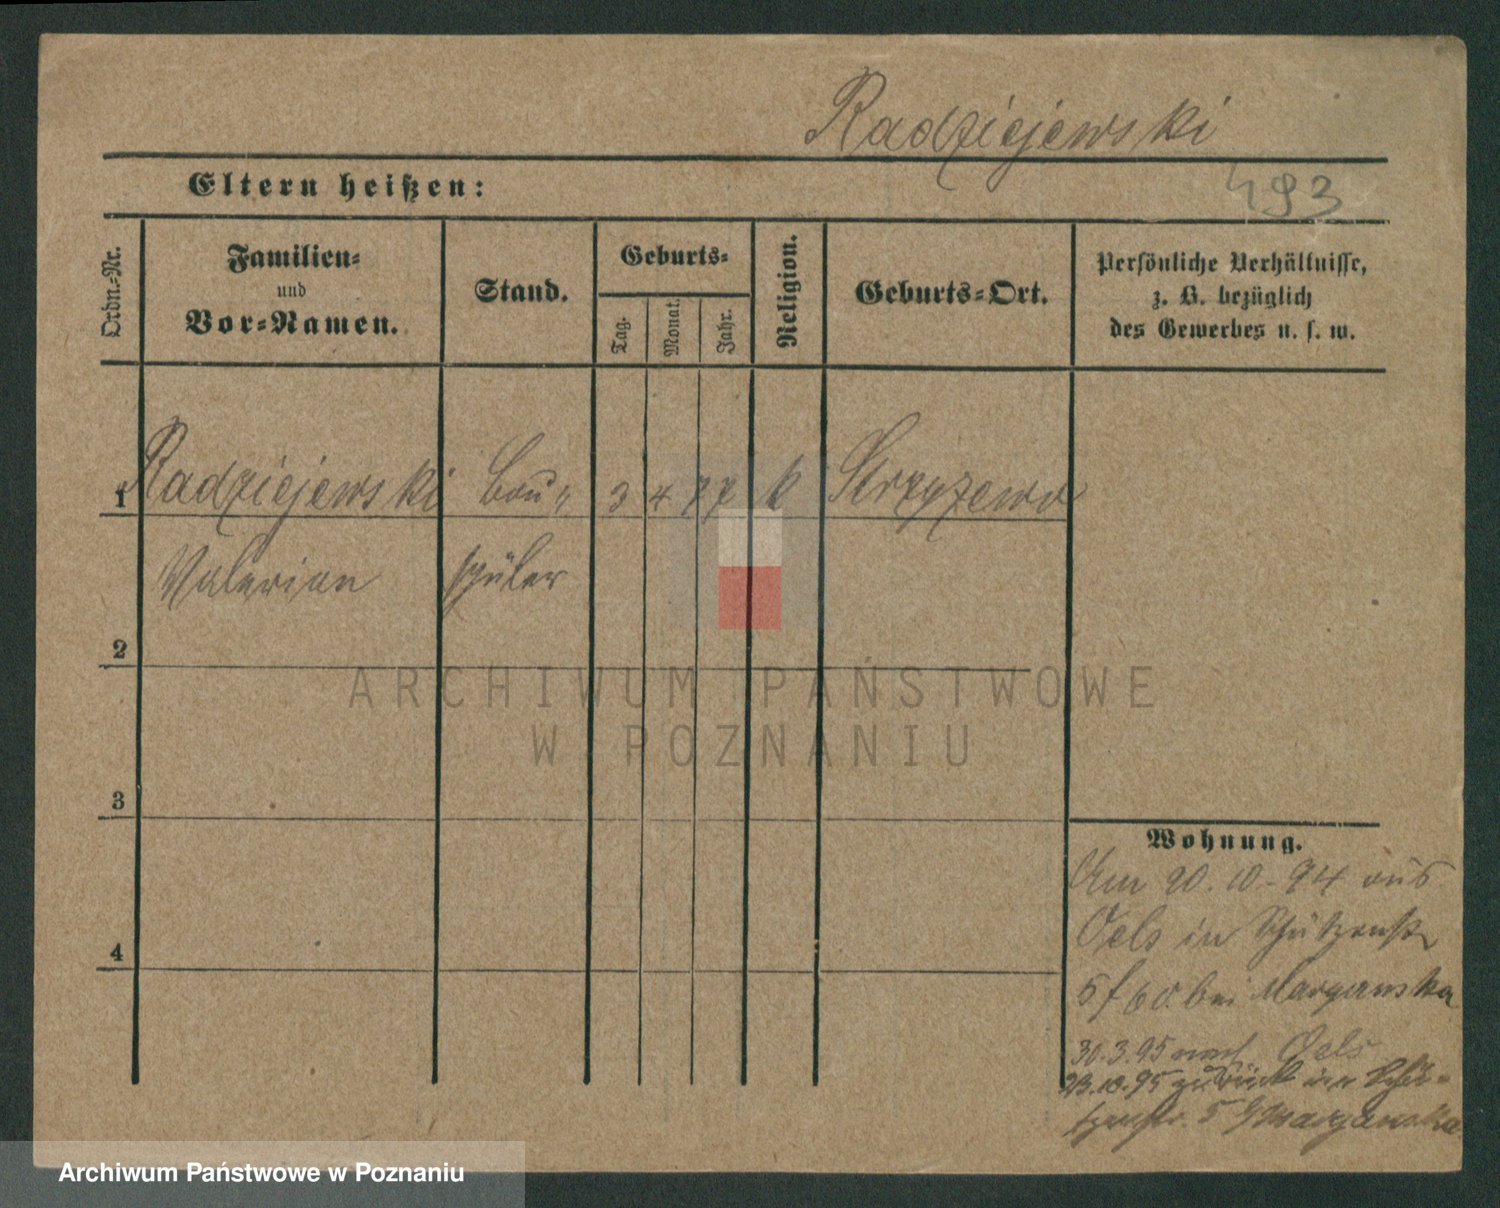 Radziejewski
493
Eltern heißen:
Ordn.-Nr.
Familien-
und
Vor-Namen.
Stand.
Geburts-
Tag.
Monat.
Jahr.
Religion.
Geburts-Ort.
Persönliche Verhältnisse,
z. B. bezüglich
des Gewerbes u. s. w.
1 Radziejewski Bau- 3 4 77 k Strzyzewo
Valerian schüler
2
ARCHIWUM PAŃSTWOWE
W POZNANIU
3
4
Wohnung.
Am 20.10.-94 aus
Oels in Schützenstr
5 bei Marganska
30.3.95 nach Oels
23.10.95 zurück in Schü-
tzenstr. 5 Marganska
Archiwum Państwowe w Poznaniu